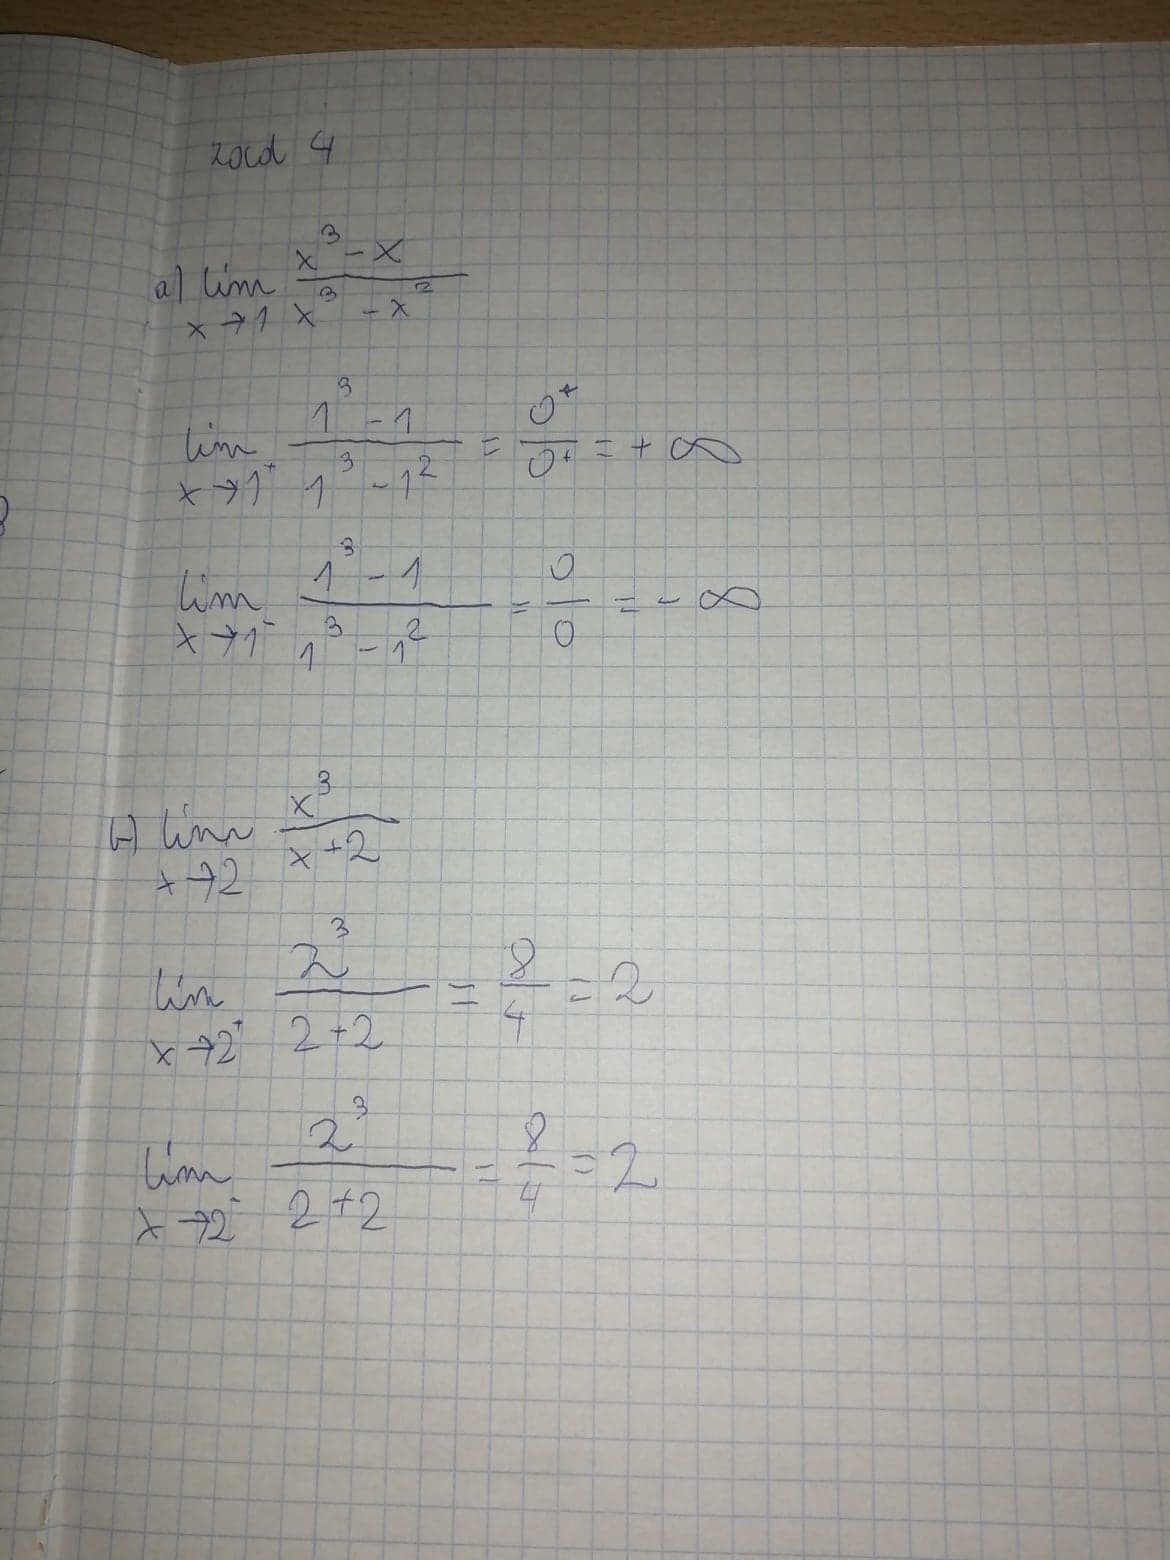 zad 4
a) lim x→1 (x³ - x)/(x³ - x²)
lim x→1⁺ (1³ - 1)/(1³ - 1²) = 0⁺/0⁺ = + ∞
lim x→1⁻ (1³ - 1)/(1³ - 1²) = 0/0 = - ∞
b) lim x→2 x³/(x + 2)
lim x→2⁺ 2³/(2 + 2) = 8/4 = 2
lim x→2⁻ 2³/(2 + 2) = 8/4 = 2